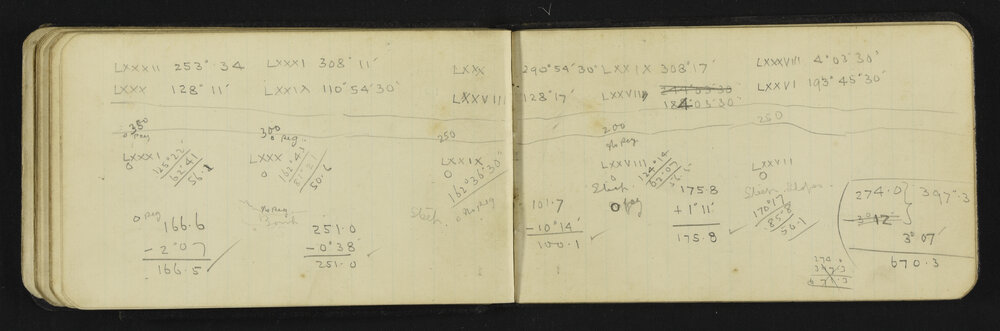 LXXXII 253° 34 LXXXI 308° 11'
LXXX 128° 11' LXXIX 110° 54' 30"
380
LXXXI
0
125° 22'
62° 41
56.1
300
0 Peg
LXXX
0
162° 41
50.6
250
LXXIX
0
162° 36' 30"
0 No Peg
Steep
0 Peg
166.6
- 2° 07
166.5
No Peg
251.0
- 0° 38'
251.0
LXXX 290° 54' 30" LXXIX 308° 17'
LXXVIII 128° 17' LXXVIII 244° 03 30
184° 03' 30"
LXXXVIII 4° 03' 30"
LXXVI 193° 45' 30"
200
No Peg
LXXVIII
0
124° 14
62° 07
Steep
0 Peg
250
LXXVII
0
Steep Slopes
170° 17
85.8
50.1
101.7
- 10° 14'
100.1
175.8
+ 1° 11'
175.8
274.0 397.3
3° 12'
3° 07'
670.3